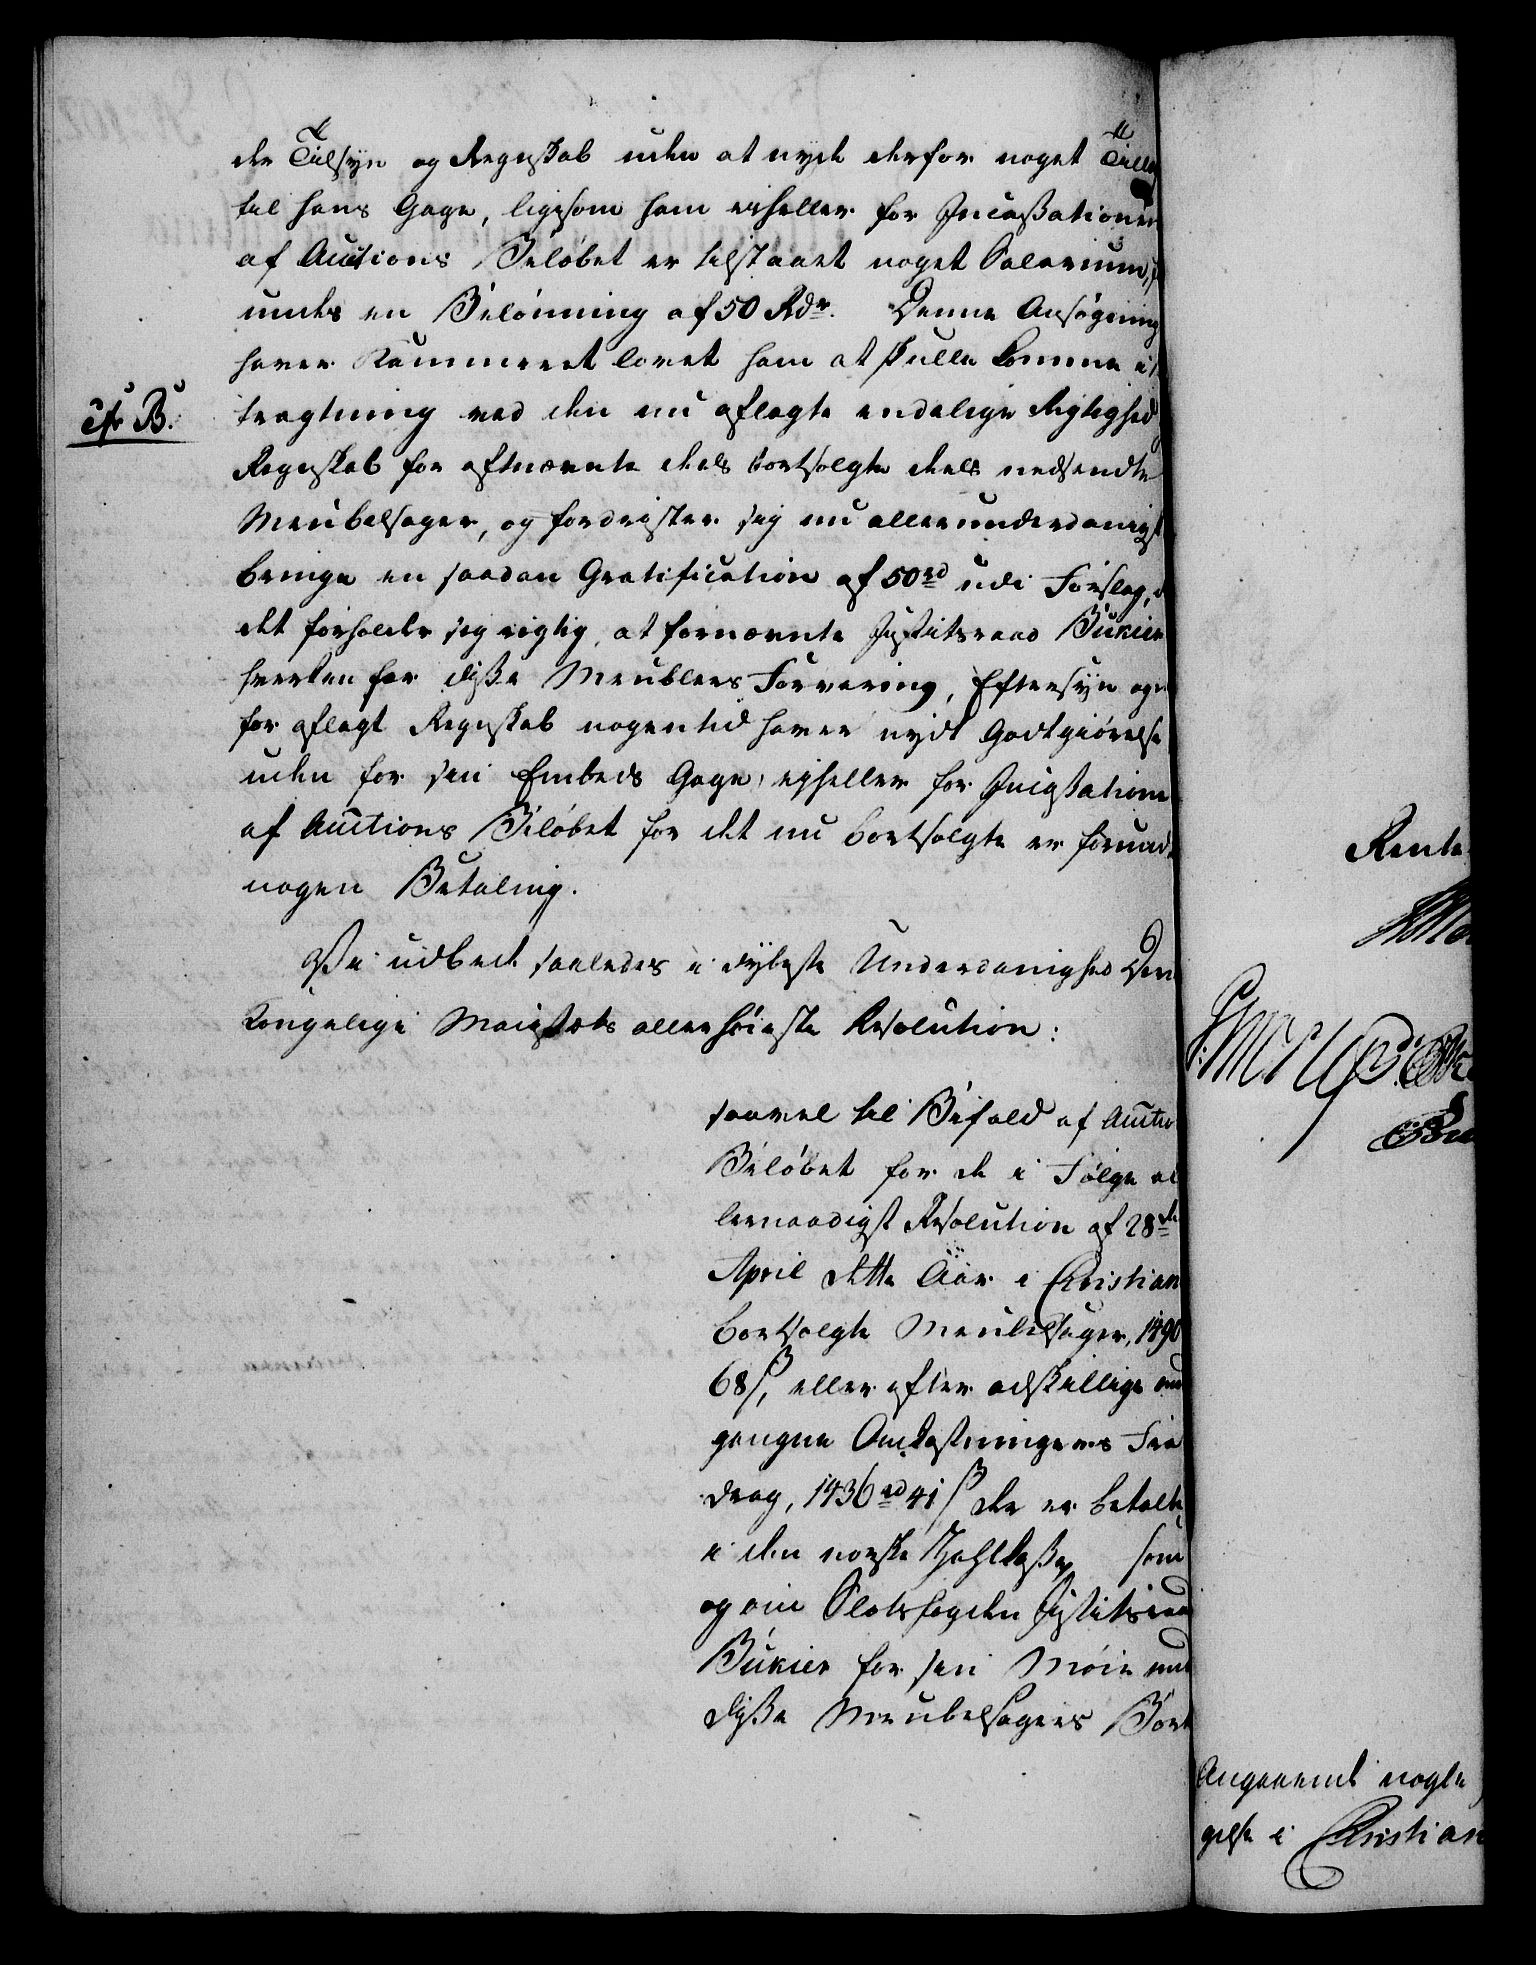 der Tilsyn og Regnskab uden at nyde derfor noget Tillæg
til hans Gage, ligesom ham eiheller for Incassationen
af Auctions Beløbet er tilstaaet noget Salarium,
undes en Belønning af 50 Rdr. Denne Ansøgning
haver Kammeret lovet ham at skulle komme i
cfr B.
tragtning ved den nu aflagte endelige Rigtighed
Regnskab for oftnævnte deels bortsolgte deels nedsendte
Meubelsager, og fordrister sig nu allerunderdanigst
bringe en saadan Gratification af 50 rd udi Forslag,
det forholder sig rigtig, at fornævnte Justitsraad Bukier
hverken for disse Meublers Forvaring, Eftersyn og
for aflagt Regnskab nogentid haver nydt Godtgiørelse
uden for sin Embeds Gage, ejheller for Incassation
af Auctions Beløbet for det nu bortsolgte er forundt
nogen Betaling.
Vi udbede saaledes i dybeste Underdanighed Deres
Kongelige Maiestæts allerhøieste Resolution:
saavel til Bifald af Auctions
Beløbet for de i Følge al
lernaadigst Resolution af 28de
April dette Aar i Christian
bortsolgte Meubelsager, 1490
68 s, eller efter adskillige
gangne Omkostningers Fra
drag, 1436 rd 41 s der er betalte
i den norske Zahlkasse, som
og om Slotsfogden Justitsraad
Bukier for sin Møie med
disse Meubelsagers Bort
Rente
Angaaende nogle
gelse i Christian